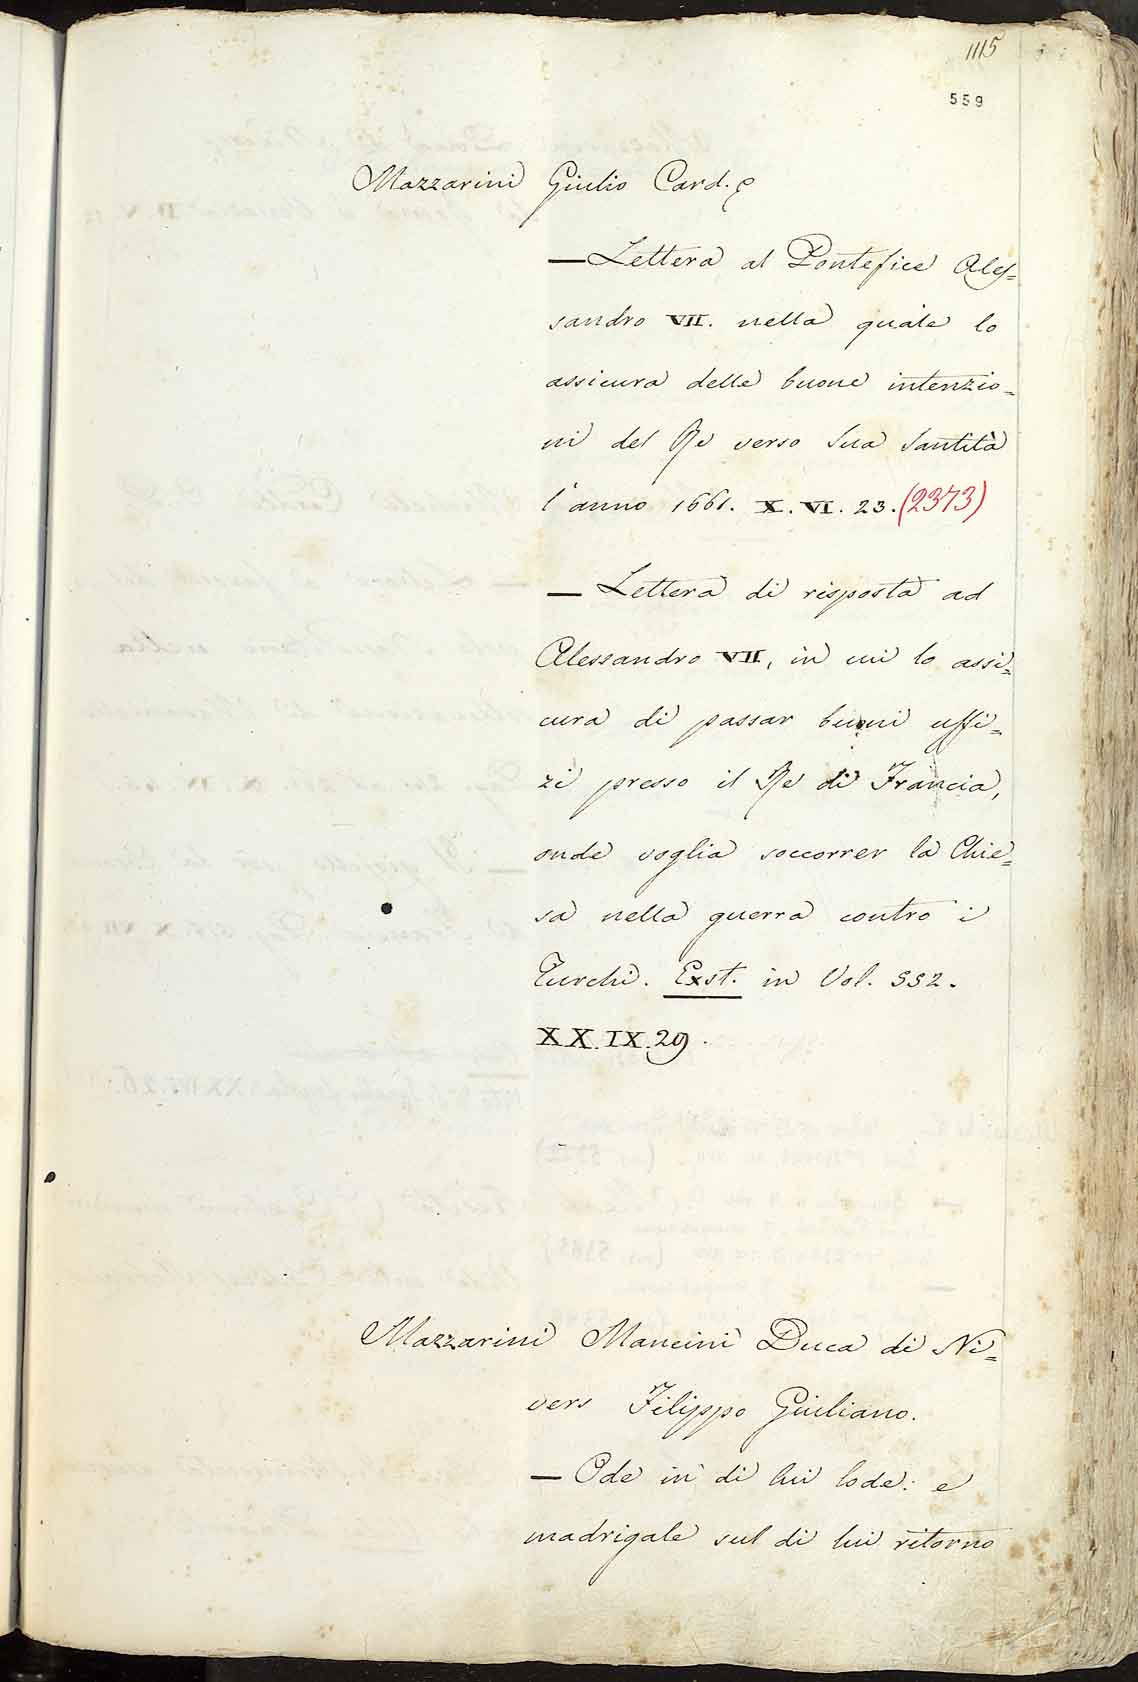 1115
559
Mazzarini Giulio Card.e
— Lettera al Pontefice Ales=
sandro VII. nella quale lo
assicura delle buone intenzio=
ni del Re verso Sua Santità
l'anno 1661. X. VI. 23. (2373)
— Lettera di risposta ad
Alessandro VII, in cui lo assi=
cura di passar buoni uffi=
zi presso il Re di Francia,
onde voglia soccorrer la Chie=
sa nella guerra contro i
Turchi. Exst. in Vol. 552.
XX. IX. 29.
Mazzarini Mancini Duca di Ni=
vers Filippo Giuliano.
— Ode in di lui lode: e
madrigale sul di lui ritorno